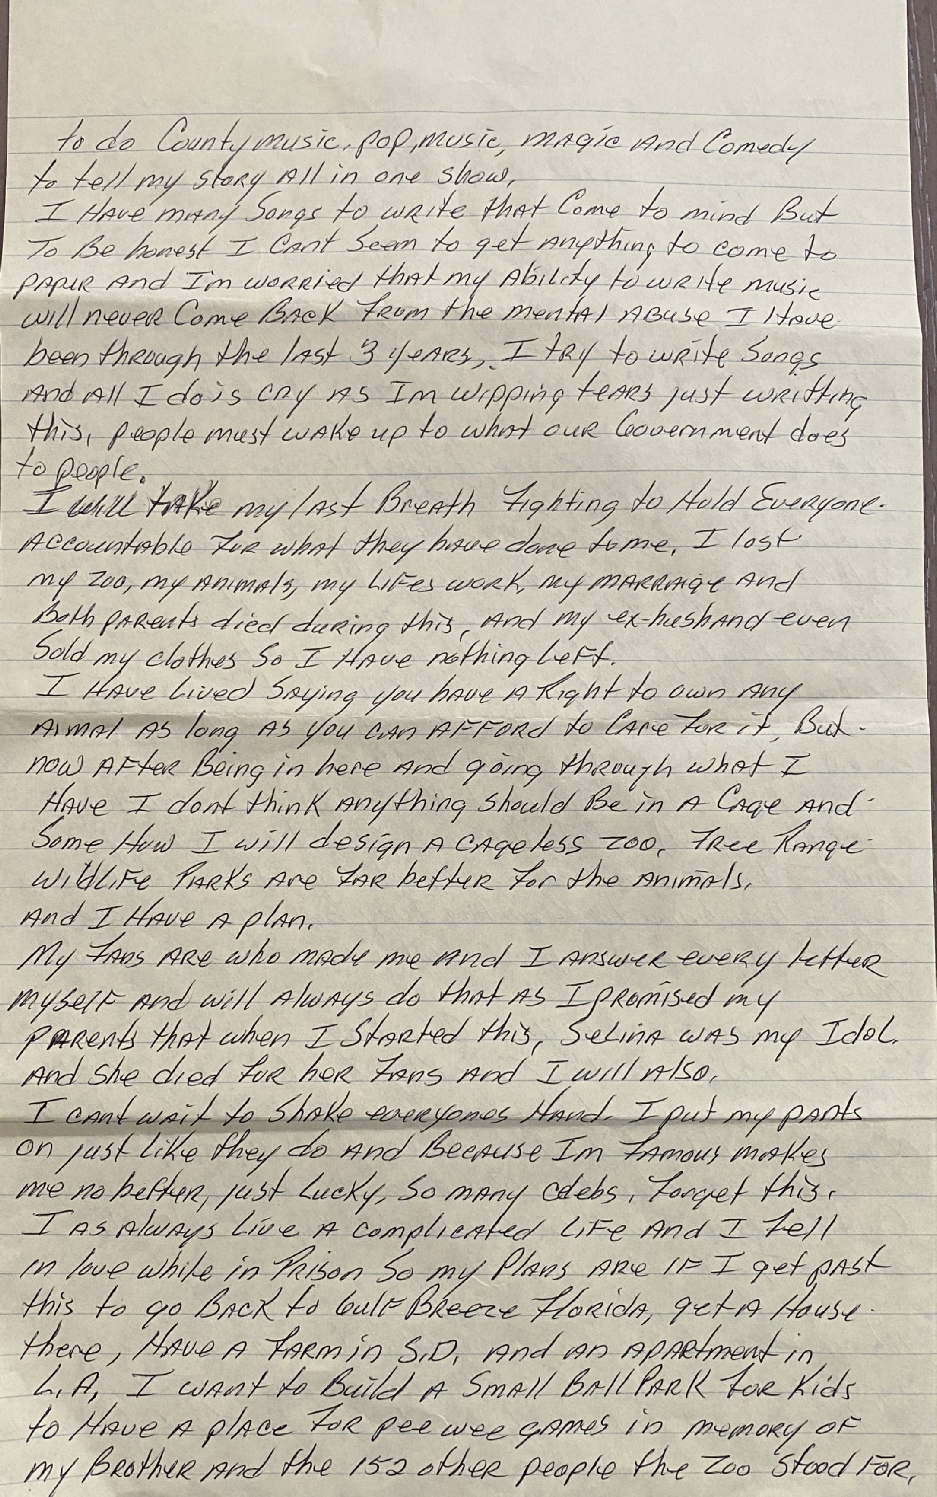 to do County music, pop, music, magic and Comedy
to tell my story All in one show.
I Have many Songs to write that Come to mind But
To Be honest I Cant Seem to get Anything to come to
paper And Im worried that my Ability to write music
will never Come Back From the mental Abuse I Have
been through the last 3 years, I try to write Songs
And All I do is cry As Im wipping tears just writting
this, people must wake up to what our Government does
to people.
I will take my last Breath Fighting to Hold Everyone
Accountable For what they have done to me, I lost
my Zoo, my Animals, my Lifes work, my marrage and
Both parents died during this, and my ex-husband even
Sold my clothes So I Have nothing Left.
I Have Lived Saying you have A Right to own Any
Aimal As long As you can AFFord to Care For it, But
now AFter Being in here And going through what I
Have I dont think Anything should Be in A Cage And
Some How I will design A cageless Zoo. Free Range
Wildlife Parks Are Far better For the Animals.
And I Have A plan.
My Fans Are who made me and I Answer every letter
myself And will Always do that As I promised my
parents that when I Started this, Selina was my Idol.
And She died For her Fans And I will Also,
I cant wait to Shake everyones Hand. I put my pants
on just Like they do And Because Im Famous makes
me no better, just Lucky, So many celebs, Forget this.
I As Always Live A complicated Life And I Fell
in love while in Prison So my Plans Are IF I get past
this to go Back to Gulf Breeze Florida, get A House
there, Have A Farm in S.D. and an Apartment in
L.A, I want to Build A Small Ball Park For Kids
to Have A place For pee wee games in memory of
my Brother And the 152 other people the Zoo Stood For,